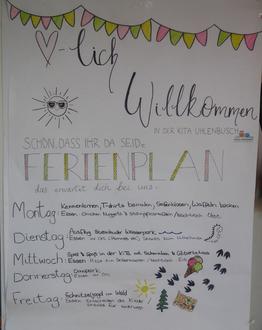 ♡-lich
Willkommen
IN DER KITA UHLENBUSCH
SCHÖN, DASS IHR DA SEID.
FERIENPLAN
das erwartet dich bei uns.
Montag: Kennenlernen, T-Shirts bemalen, Seifenblasen, Waffeln backen
Essen: Chicken Nuggets & Stampfkartoffeln / Nachtisch: Obst
Dienstag: Ausflug Wasserpark
Essen: im Ort
Mittwoch: Spiel & Spaß in der Kita mit Schminken & Glitzertattoos
Essen: Pizza zum Selbermachen / Nachtisch: Eis
Donnerstag:
Essen: im Ort
Freitag: Schnitzeljagd im Wald
Essen: der Kinder